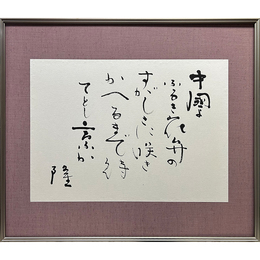 中國よ
ふるき花弁の
すがしさに咲き
かへるまでさん
てとし言ふか
隆